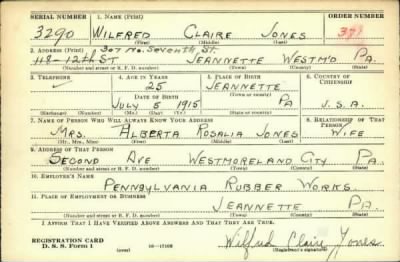 SERIAL NUMBER 1. NAME (Print) ORDER NUMBER
3290 WILFRED CLAIRE JONES
(First) (Middle) (Last)
2. ADDRESS (Print) 307 No. SEVENTH ST.
118-12th ST JEANNETTE WESTM'D PA.
(Number and street or R. F. D. number) (Town) (County) (State)
3. TELEPHONE 4. AGE IN YEARS 5. PLACE OF BIRTH 6. COUNTRY OF CITIZENSHIP
25 JEANNETTE
DATE OF BIRTH (Town or county)
JULY 5 1915 PA U.S.A.
(Exchange) (Number) (Mo.) (Day) (Yr.) (State or country)
7. NAME OF PERSON WHO WILL ALWAYS KNOW YOUR ADDRESS 8. RELATIONSHIP OF THAT PERSON
MRS. ALBERTA ROSALIA JONES WIFE
(Mr., Mrs., Miss) (First) (Middle) (Last)
9. ADDRESS OF THAT PERSON
SECOND AVE WESTMORELAND CITY PA
(Number and street or R. F. D. number) (Town) (County) (State)
10. EMPLOYER'S NAME
PENNSYLVANIA RUBBER WORKS
11. PLACE OF EMPLOYMENT OR BUSINESS
JEANNETTE PA.
(Number and street or R. F. D. number) (Town) (County) (State)
I AFFIRM THAT I HAVE VERIFIED ABOVE ANSWERS AND THAT THEY ARE TRUE.
REGISTRATION CARD
D. S. S. Form 1 (over) 16—17105 Wilfred Claire Jones
(Registrant's signature)